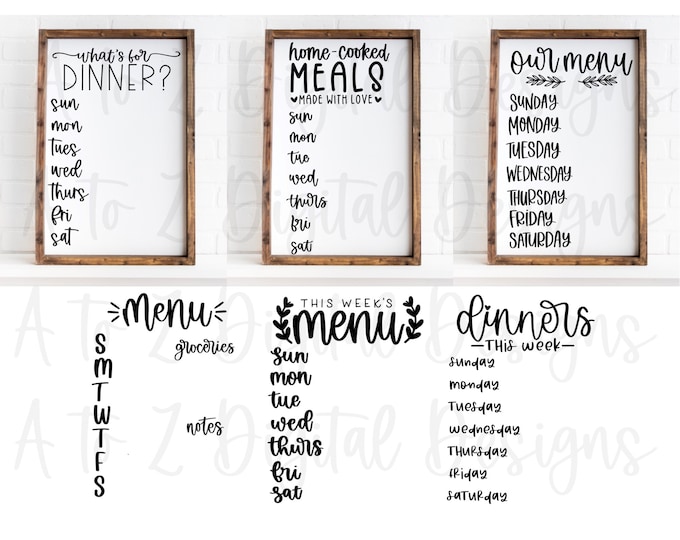 what's for
DINNER?
sun
mon
tues
wed
thurs
fri
sat
home-cooked
MEALS
MADE WITH LOVE
sun
mon
tue
wed
thurs
fri
sat
our menu
SUNDAY
MONDAY
TUESDAY
WEDNESDAY
THURSDAY
FRIDAY
SATURDAY
menu
groceries
S
M
T
W
T
F
S
notes
THIS WEEK'S
menu
sun
mon
tue
wed
thurs
fri
sat
dinners
THIS week
sunday
monday
Tuesday
wednesday
THursday
friday
saTurday
A to Z Digital Designs
A to Z Digital Designs
A to Z Digital Designs
A to Z Digital Designs